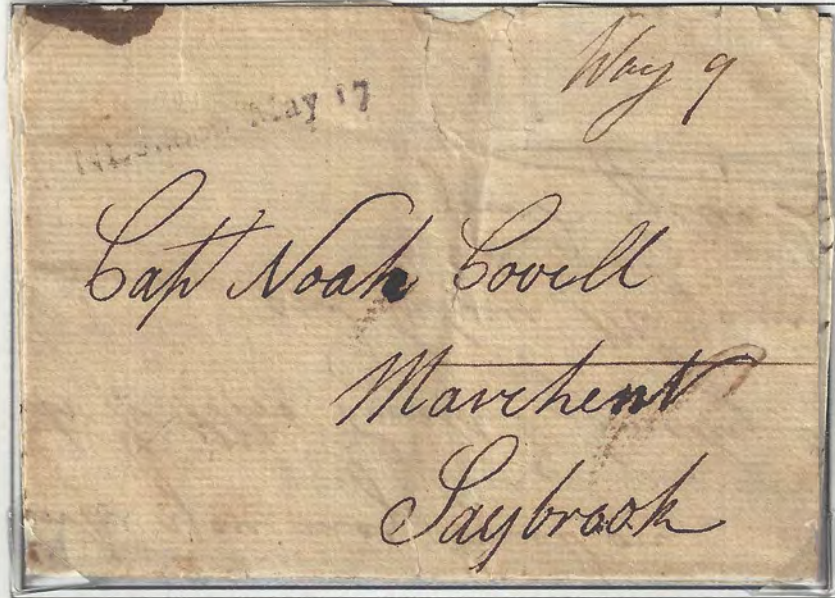 Way 9
May 17
Capt Noah Covell
Marchent
Saybrook